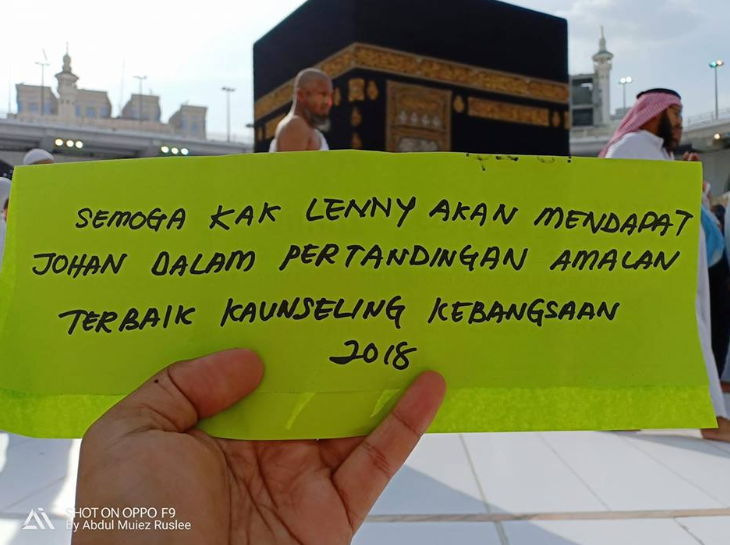 SEMOGA KAK LENNY AKAN MENDAPAT
JOHAN DALAM PERTANDINGAN AMALAN
TERBAIK KAUNSELING KEBANGSAAN
2018
SHOT ON OPPO F9
By Abdul Muiez Ruslee